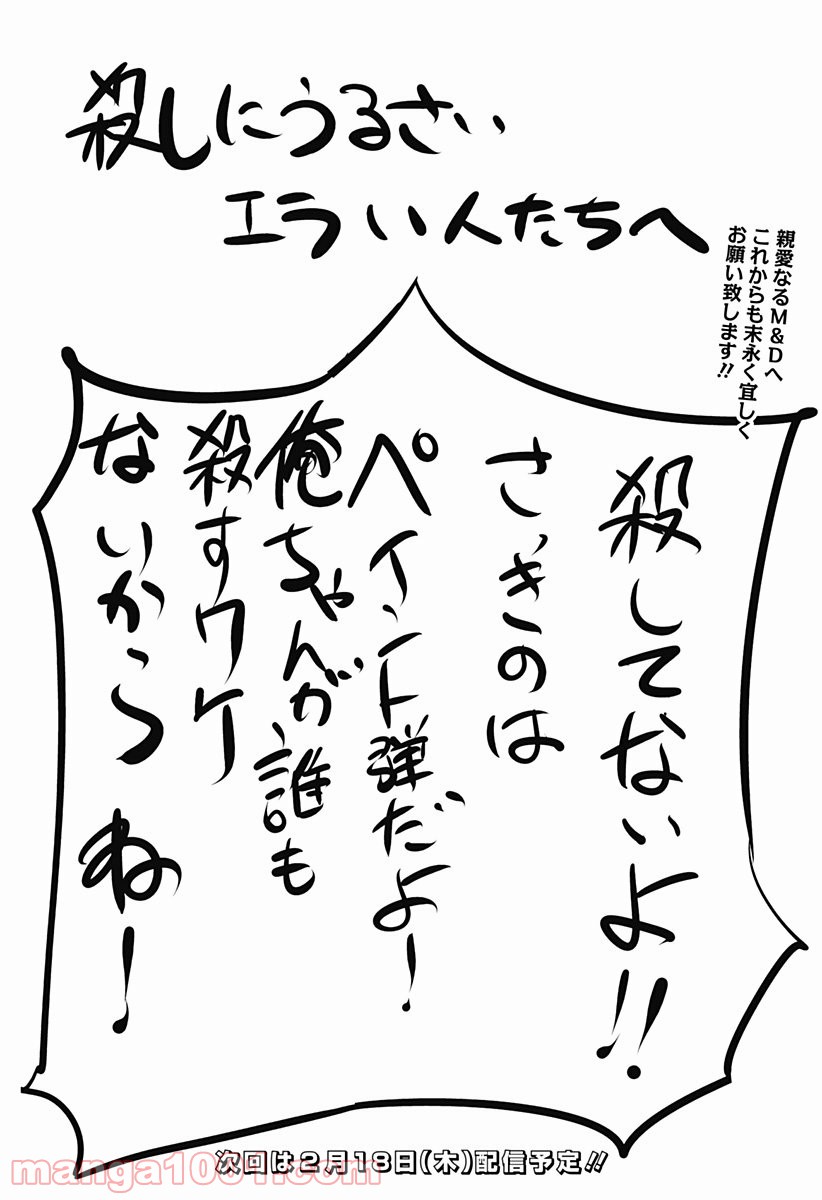 殺しにうるさい
エラい人たちへ
親愛なるM&Dへ
これからも末永く宜しく
お願い致します!!
殺してないよ!!
さっきのは
ペイント弾だよー!
俺ちゃんが誰も
殺すワケ
ないからね!
次回は2月18日(木)配信予定!!
manga1001.com